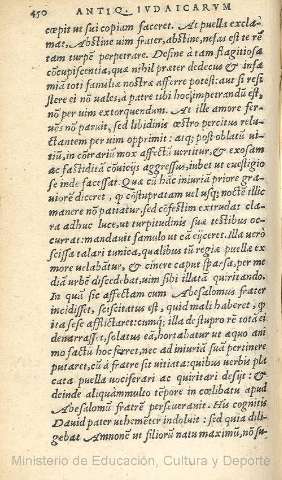 450 ANTIQ. IVDAICARVM
cœpit ut sui copiam faceret. At puella excla-
mat, Abstine uim frater, abstine, nefas est te rē
tam turpem perpetrare. Desine à tam flagitiosa
cōcupiscentia, quæ nihil præter dedecus & infa
miā toti familiæ nostræ afferre potest: aut si resi
stere ei nō uales, à patre tibi hoc, impetrandū est,
nō per uim extorquendum. At ille amore fer-
uēs nō paruit, sed libidinis œstro percitus relu-
ctantem per uim opprimit: atq; post oblatū ui-
tiū, in cōtrariū mox affectū uertitur, & exosam
ac fastiditā cōuicijs aggressus, iubet ut euestigio
se inde facessat. Quæ cū hāc iniuriā priore gra-
uiorē diceret, q̄ cōstupratam uel usq; noctē illic
manere nō patiatur, sed cōfestim extrudat cla-
ra adhuc luce, ut turpitudinis suæ testibus oc-
currat: mandauit famulo ut eā eijceret. Illa uerò
scissa talari tunica, qualibus tū regiæ puellæ ex
more uelabātur, & cinere caput sparsa, per me
diā urbē discedebat, uim sibi illatā quiritando.
In quā sic affectam cum Abesalomus frater
incidisset, sciscitatus est, quid mali haberet, q̄
ita sese afflictaret: cumq; illa de stupro rē totā ei
denarrasset, solatus eā, hortabatur ut æquo ani
mo factū hoc ferret, nec ad iniuriā suā pertinere
putaret, cū à fratre sit uitiata: quibus uerbis pla
cata puella uociferari ac quiritari desijt: &
deinde aliquammulto tēpore in cœlibatu apud
Abesalomū fratrē perseuerauit. His cognitis
Dauid pater uehemēter indoluit: sed quia dili-
gebat Amnonē ut filiorū natu maximū, nō su-
Ministerio de Educación, Cultura y Deporte